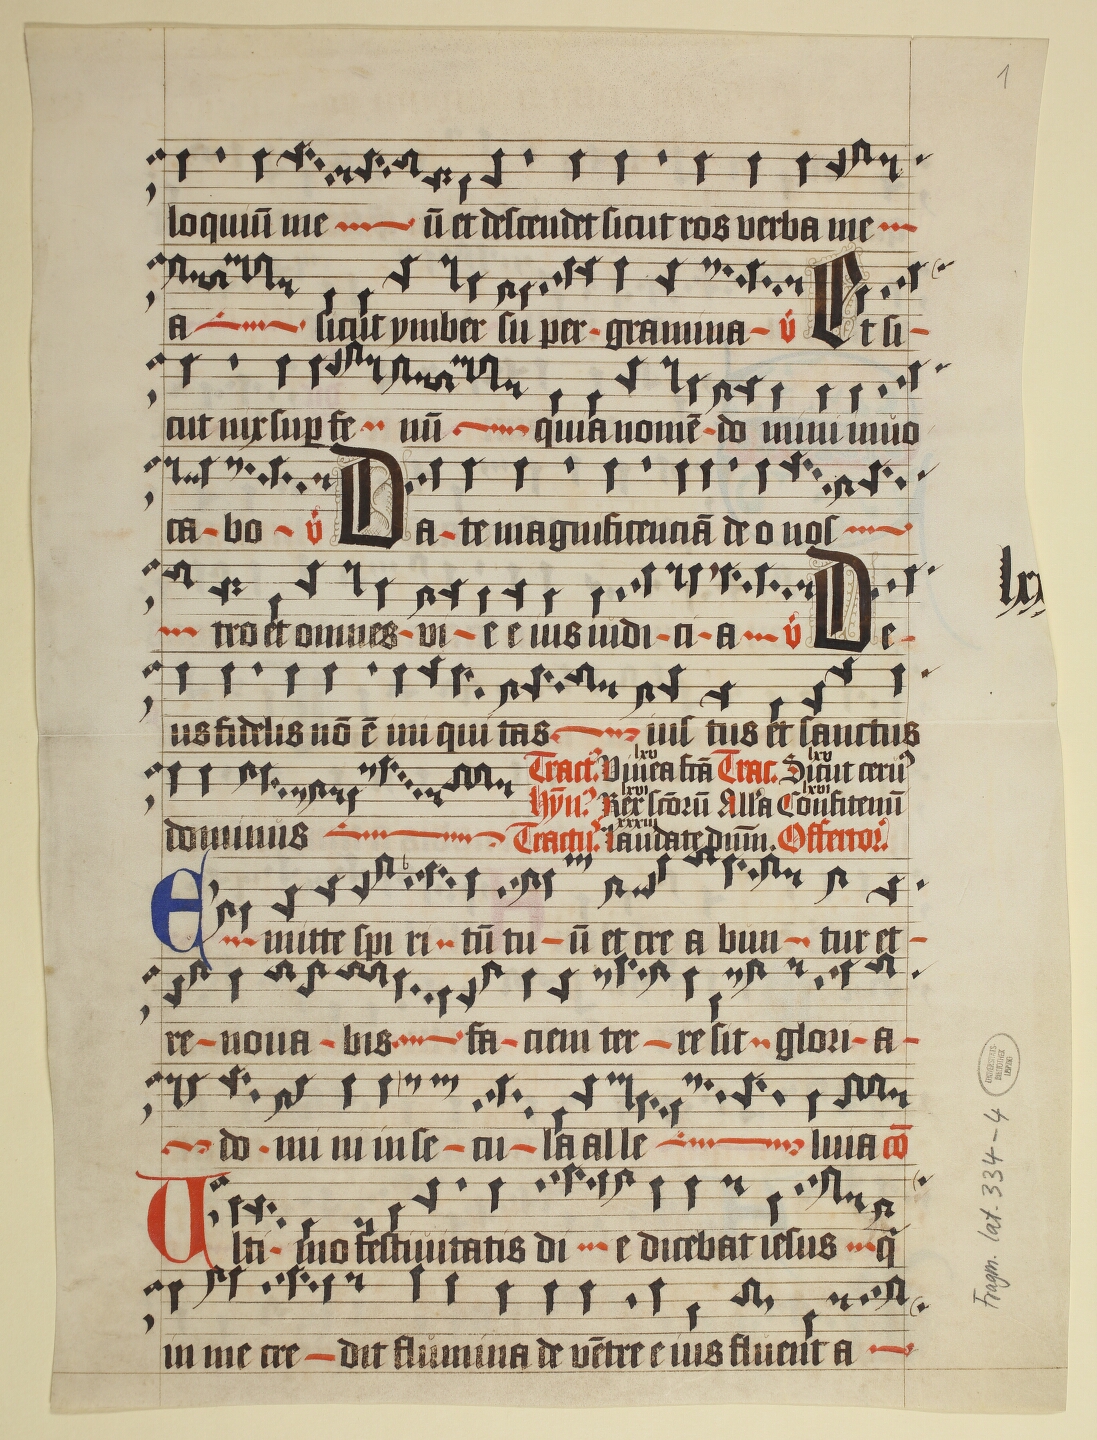 1
loquiū me ū et descendet sicut ros verba me
a sicut ymber su per gramina v̄ Et si
cut nix sup fe nū quia nomē do mini invo
ca bo v̄ Da te magnificenciā de o nos
tro et omnes vi e e ius iudi ci a v̄ De
us fidelis nō ē ini qui tas ius tus et sanctus
lxv lxv
Tract. Vinea fcā Trac. Sicut cervꝰ
lxvi
Hyn. Rex scōrū Alla Confitemī
xxxiii
dominus Tractꝰ. laudate dnm. Offertor.
lxx
Emitte spi ri tū tu ū et cre a bun tur et
re nova bis fa ciem ter re sit glori a
do mi ni in se cu la alle luia cō
Ulti mo festivitatis di e dicebat iesus q̄
in me cre dit flumina de vētre e ius fluent a
UNIVERSITÄTS-
BIBLIOTHEK
LEIPZIG
Fragm. lat. 334-4